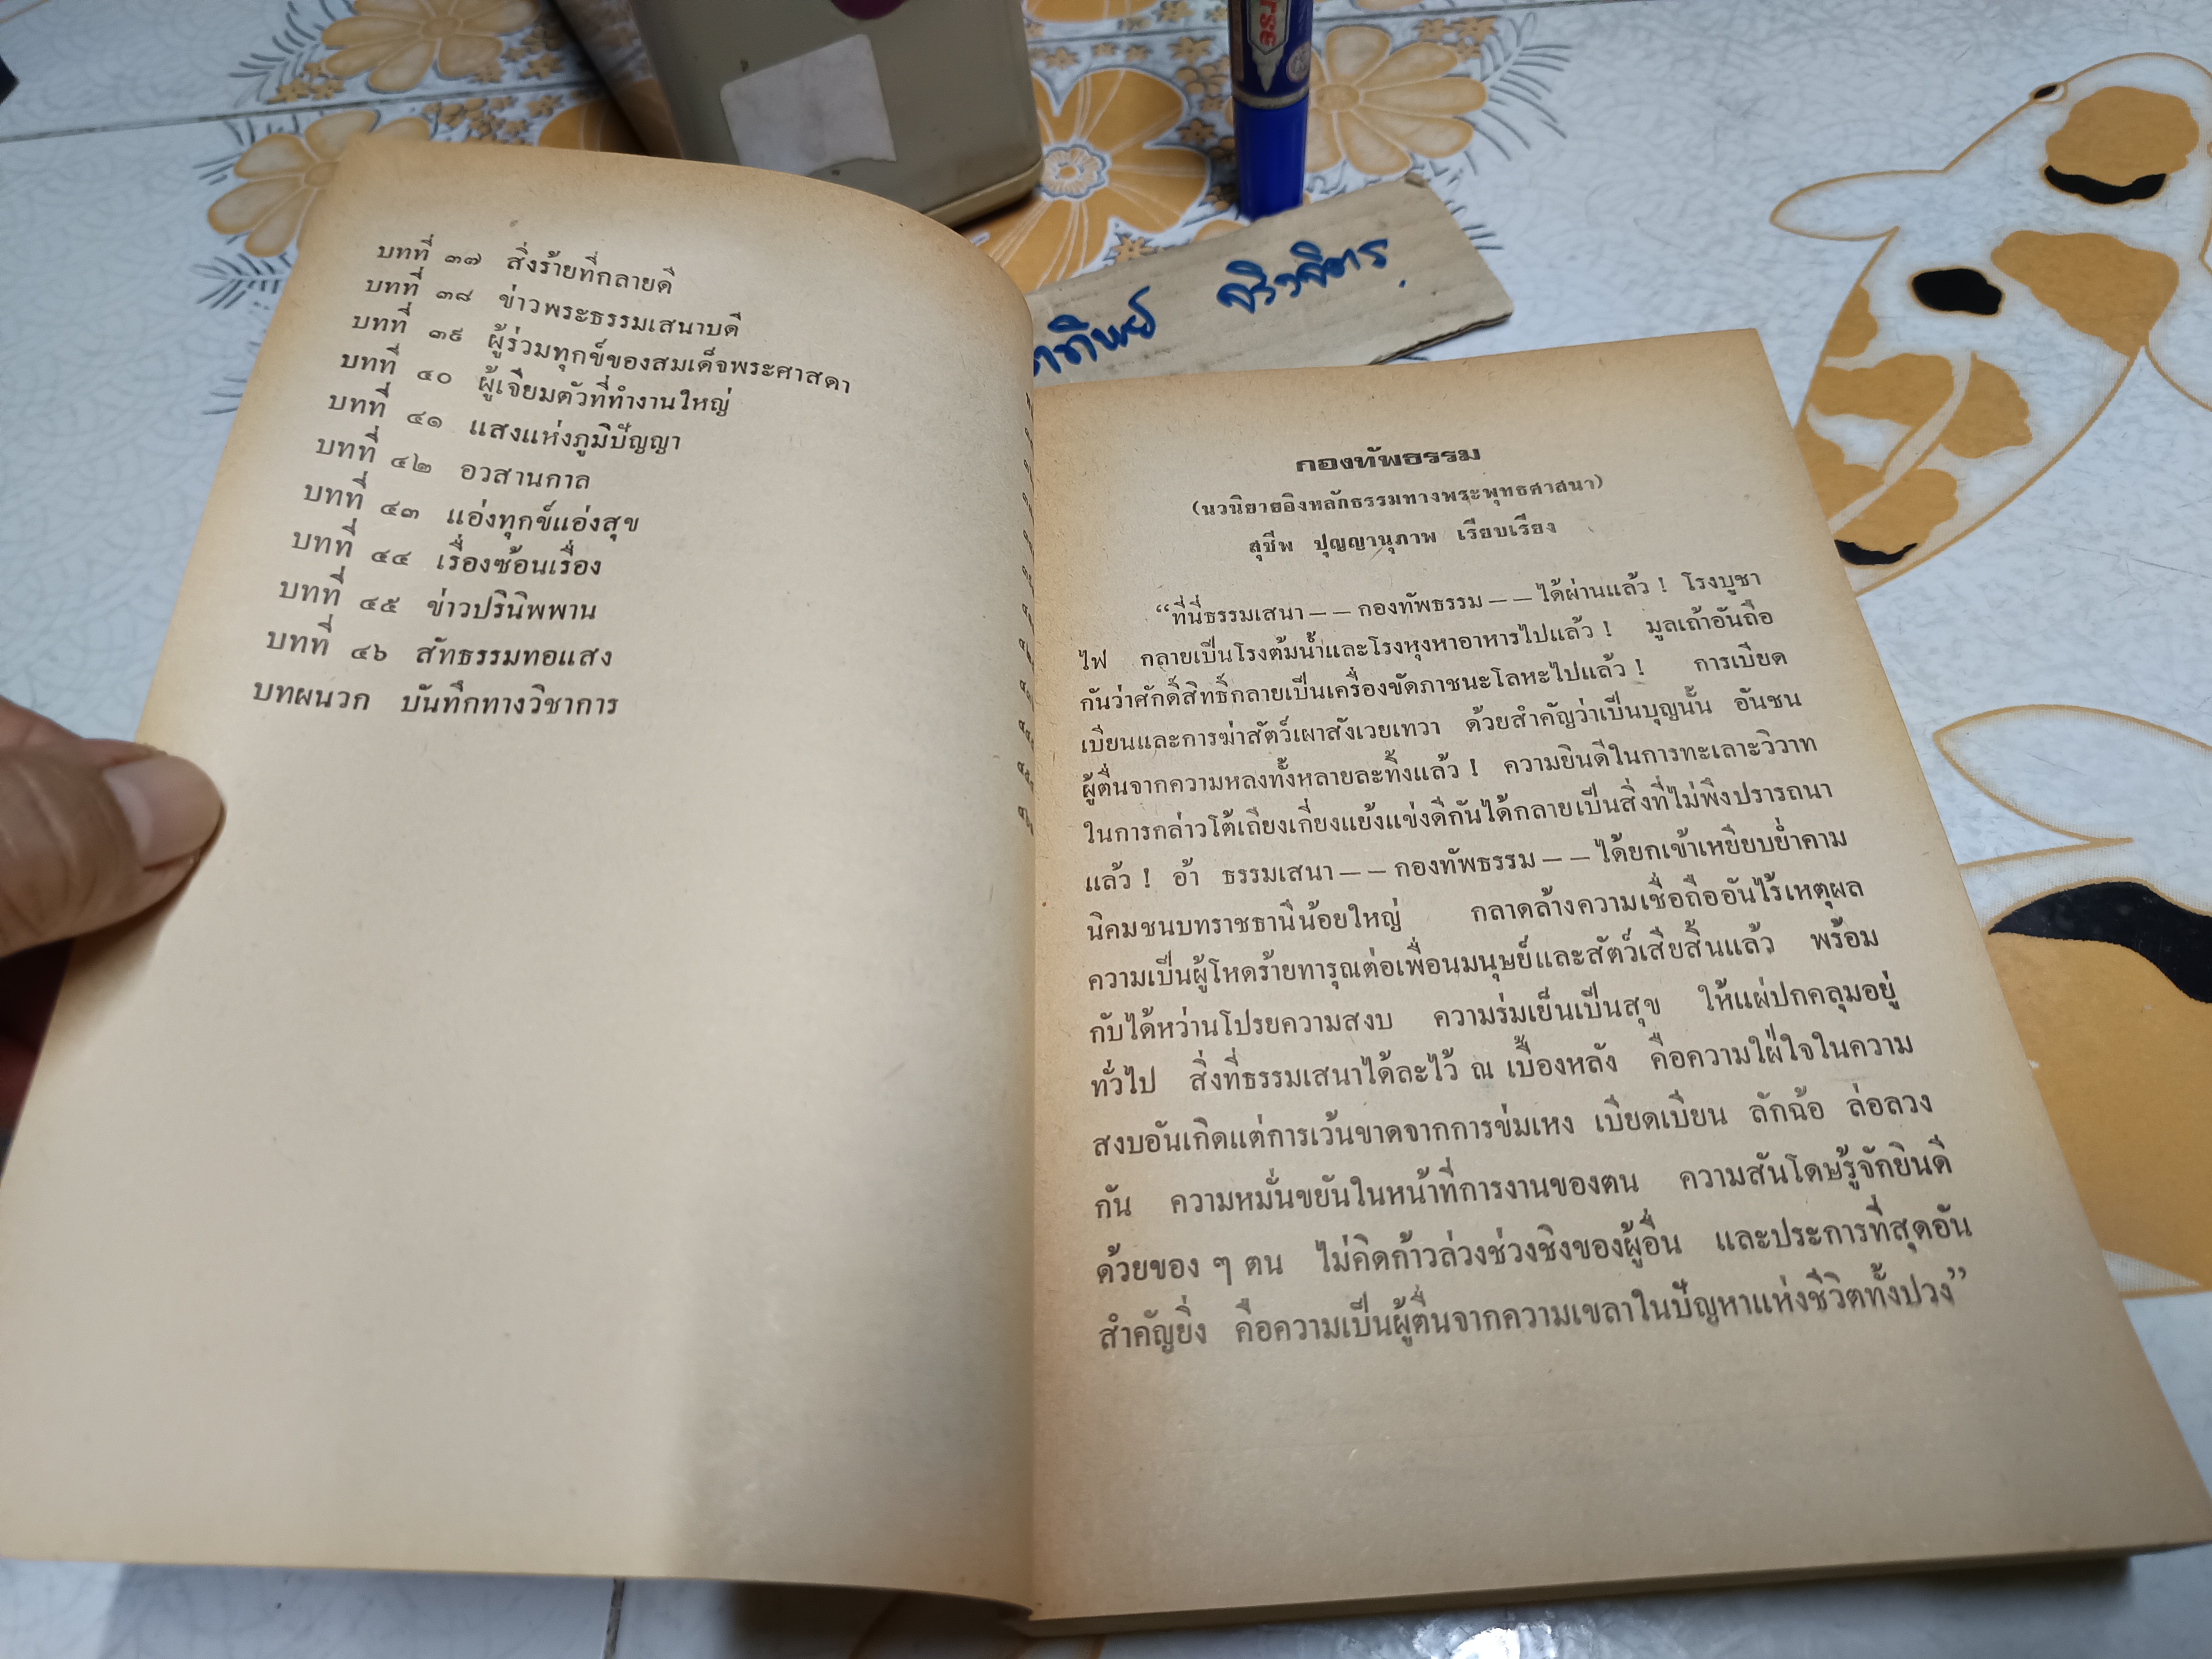 บทที่ ๓๗ สิ่งร้ายที่กลายดี
บทที่ ๓๘ ข่าวพระธรรมเสนาบดี
บทที่ ๓๙ ผู้ร่วมทุกข์ของสมเด็จพระศาสดา
บทที่ ๔๐ ผู้เจียมตัวที่ทำงานใหญ่
บทที่ ๔๑ แสงแห่งภูมิปัญญา
บทที่ ๔๒ อวสานกาล
บทที่ ๔๓ แอ่งทุกข์แอ่งสุข
บทที่ ๔๔ เรื่องซ้อนเรื่อง
บทที่ ๔๕ ข่าวปรินิพพาน
บทที่ ๔๖ สัทธรรมทอแสง
บทผนวก บันทึกทางวิชาการ
กองทัพธรรม
(นวนิยายอิงหลักธรรมทางพระพุทธศาสนา)
สุชีพ ปุญญานุภาพ เรียบเรียง
“ที่นี่ธรรมเสนา – – กองทัพธรรม – – ได้ผ่านแล้ว ! โรงบูชา
ไฟ กลายเป็นโรงต้มน้ำและโรงหุงหาอาหารไปแล้ว ! มูลเถ้าอันถือ
กันว่าศักดิ์สิทธิ์กลายเป็นเครื่องขัดภาชนะโลหะไปแล้ว ! การเบียด
เบียนและการฆ่าสัตว์เผาสังเวยเทวา ด้วยสำคัญว่าเป็นบุญนั้น อันชน
ผู้ตื่นจากความหลงทั้งหลายละทิ้งแล้ว ! ความยินดีในการทะเลาะวิวาท
ในการกล่าวโต้เถียงเกี่ยงแย้งแข่งดีกันได้กลายเป็นสิ่งที่ไม่พึงปรารถนา
แล้ว ! อ้า ธรรมเสนา – – กองทัพธรรม – – ได้ยกเข้าเหยียบย่ำคาม
นิคมชนบทราชธานีน้อยใหญ่ กลาดล้างความเชื่อถืออันไร้เหตุผล
ความเป็นผู้โหดร้ายทารุณต่อเพื่อนมนุษย์และสัตว์เสียสิ้นแล้ว พร้อม
กับได้หว่านโปรยความสงบ ความร่มเย็นเป็นสุข ให้แผ่ปกคลุมอยู่
ทั่วไป สิ่งที่ธรรมเสนาได้ละไว้ ณ เบื้องหลัง คือความใฝ่ใจในความ
สงบอันเกิดแต่การเว้นขาดจากการข่มเหง เบียดเบียน ลักฉ้อ ล่อลวง
กัน ความหมั่นขยันในหน้าที่การงานของตน ความสันโดษรู้จักยินดี
ด้วยของ ๆ ตน ไม่คิดก้าวล่วงช่วงชิงของผู้อื่น และประการที่สุดอัน
สำคัญยิ่ง คือความเป็นผู้ตื่นจากความเขลาในปัญหาแห่งชีวิตทั้งปวง”